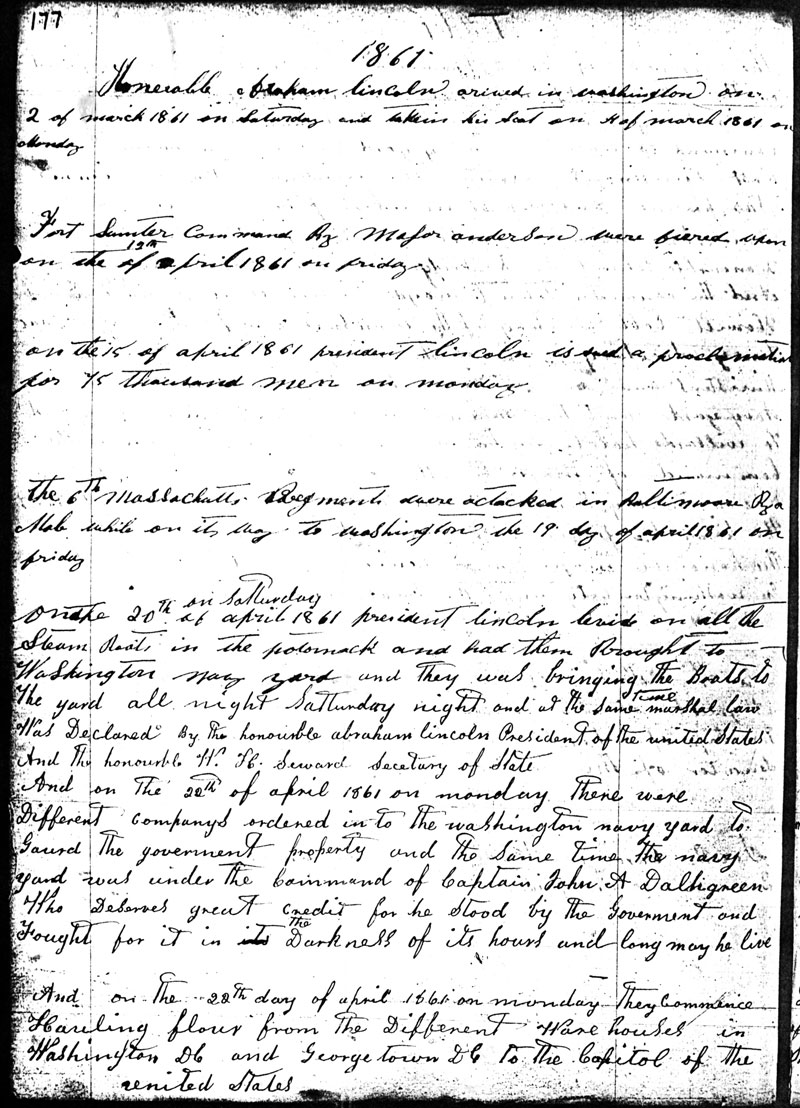 177
1861
Honerable Abraham lincoln arived in washington on
2 of march 1861 on Saturday and taken his Seat on 4 of march 1861 on
Monday
Fort Sumter Command By Major anderson were fiered upon
on the 12th of april 1861 on friday
on the 15 of april 1861 president lincoln issued a proclamation
for 75 thousand men on monday
the 6th Massachatts Regments were actacked in Baltimoore By a
Mob while on its way to washington the 19 day of april 1861 on
friday
on Satturday
on the 20th of april 1861 president lincoln levid on all the
Steam Boats in the potomack and had them Brought to
Washington navy yard and they was bringing the Boats to
the yard all night Satturday night and at the same time marshal law
Was Declared By the honourble abraham lincoln President of the united States
And the honourble W. H. Seward Secetary of State
And on the 22th of april 1861 on monday There were
Different Companys ordered in to the washington navy yard to
Gaurd the goverment property and the same time the navy
yard was under the Command of Captain John A Dalhgreen
Who Deserves great credit for he Stood by the Goverment and
Fought for it in its the Darkness of its hours and long may he live
And on the 22th day of april 1861 on monday They Commence
Hauling flour from the Different Ware houses in
Washington DC and Georgetown DC to the Capitol of the
united States